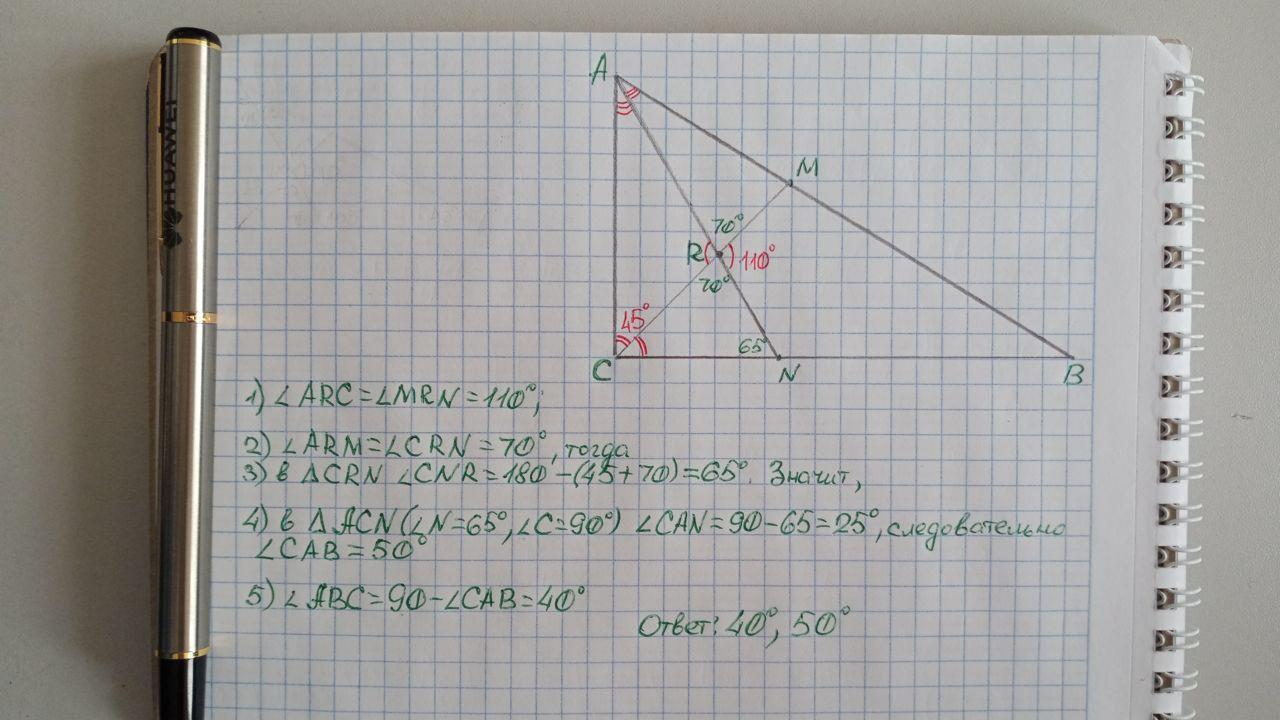 HUAWEI
A
M
70°
R
110°
70°
45°
65°
C
N
B
1) ∠ARC=∠MRN=110°;
2) ∠ARM=∠CRN=70°, тогда
3) в △CRN ∠CNR=180-(45+70)=65°. Значит,
4) в △ACN(∠N=65°,∠C=90°) ∠CAN=90-65=25°, следовательно
∠CAB=50°
5) ∠ABC=90-∠CAB=40°
Ответ: 40°, 50°